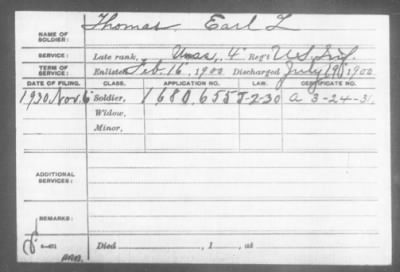 Thomas, Earl L
NAME OF SOLDIER:
SERVICE: Late rank, Unas., 4" Reg't U.S. Inf.
TERM OF SERVICE: Enlisted Feb. 16, 1900 Discharged July 19, 1900
DATE OF FILING. CLASS. APPLICATION NO. LAW. CERTIFICATE NO.
1930 Nov. 6 Soldier, 1680,655 J-2-30 A 3-24-31.
Widow,
Minor,
ADDITIONAL SERVICES:
REMARKS:
Died , 1 , at